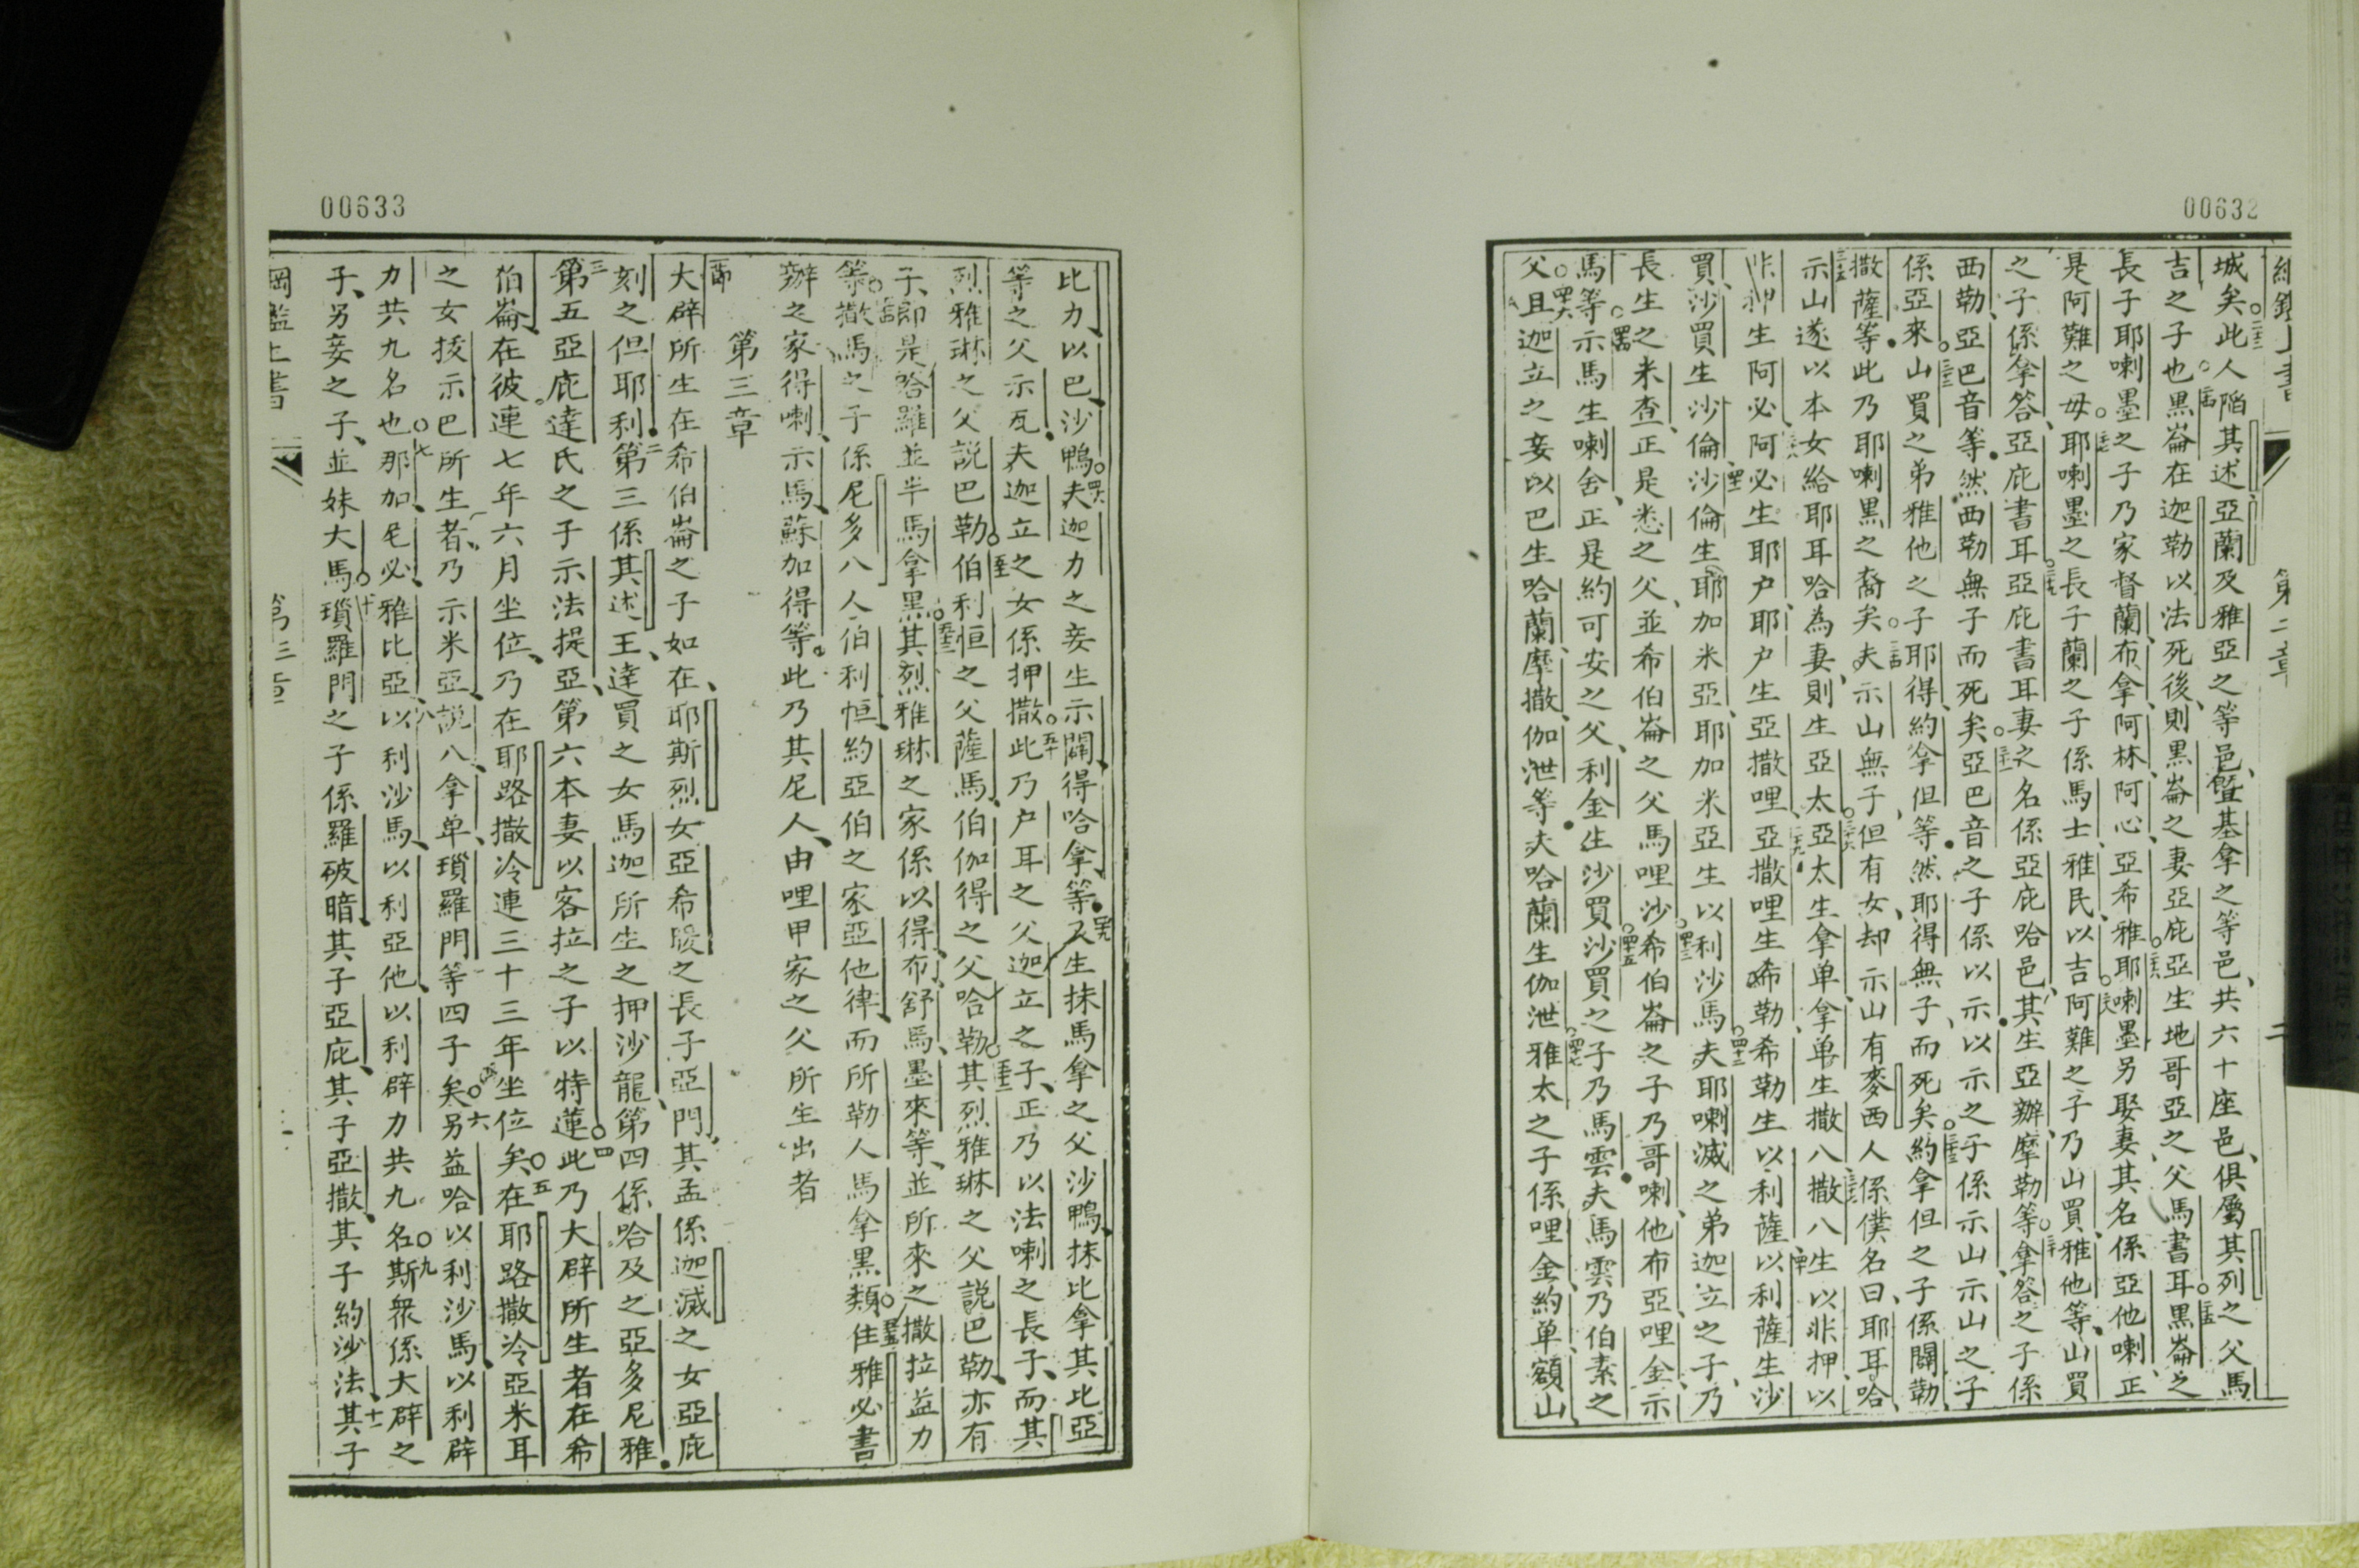 00632
城矣此人陷其述亞蘭及雅亞之等邑暨基拿之等邑共六十座邑俱屬其列之父馬
吉之子也黑崙在迦勒以法死後則黑崙之妻亞庇亞生地哥亞之父馬書耳黑崙之
長子耶喇墨之子乃家督蘭布拿阿林阿心亞希雅耶喇墨另娶妻其名係亞他喇正
是阿難之母耶喇墨之長子蘭之子係馬士雅民以吉阿難之子乃山買雅他等山買
之子係拿答亞庇書耳亞庇書耳妻之名係亞庇哈邑其生亞辦摩勒等拿答之子係
西勒亞巴音等然西勒無子而死矣亞巴音之子係以示以示之子係示山示山之子
係亞來山買之弟雅他之子耶得約拿但等然耶得無子而死矣約拿但之子係闢勒
撒薩等此乃耶喇黑之裔矣夫示山無子但有女却示山有麥西人係僕名曰耶耳哈
示山遂以本女給耶耳哈為妻則生亞太亞太生拿单拿单生撒八撒八生以非押以
非押生阿必阿必生耶户耶户生亞撒哩亞撒哩生希勒希勒生以利薩以利薩生沙
買沙買生沙倫沙倫生耶加米亞耶加米亞生以利沙馬夫耶喇滅之弟迦立之子乃
長生之米查正是悉之父並希伯崙之父馬哩沙希伯崙之子乃哥喇他布亞哩金示
馬等示馬生喇舍正是約可安之父利金生沙買沙買之子乃馬雲夫馬雲乃伯素之
父且迦立之妾以巴生哈蘭摩撒伽泄等夫哈蘭生伽泄雅太之子係哩金約单額山
00633
比力以巴沙鴨夫迦力之妾生示闢得哈拿等又生抹馬拿之父沙鴨抹比拿其比亞
等之父示瓦夫迦立之女係押撒此乃户耳之父迦立之子正乃以法喇之長子而其
烈雅琳之父説巴勒伯利恒之父薩馬伯伽得之父哈勒其烈雅琳之父説巴勒亦有
子即是哈羅並半馬拿黑其烈雅琳之家係以得布舒馬墨來等並所來之撒拉益力
等撒馬之子係尼多八人伯利恒約亞伯之家亞他律而所勒人馬拿黑類住雅必書
辦之家得喇示馬蘇加得等此乃其尼人由哩甲家之父所生出者
第三章
大辟所生在希伯崙之子如在耶斯烈女亞希暖之長子亞門其孟係迦滅之女亞庇
刻之但耶利第三係其述王達買之女馬迦所生之押沙龍第四係哈及之亞多尼雅
第五亞庇達氏之子示法提亞第六本妻以客拉之子以特蓮此乃大辟所生者在希
伯崙在彼連七年六月坐位乃在耶路撒冷連三十三年坐位矣在耶路撒冷亞米耳
之女拔示巴所生者乃示米亞説八拿单瑣羅門等四子矣另益哈以利沙馬以利辟
力共九名也那加尼必雅比亞以利沙馬以利亞他以利辟力共九名斯衆係大辟之
子另妾之子並妹大馬瑣羅門之子係羅破暗其子亞庇其子亞撒其子約沙法其子
第三章